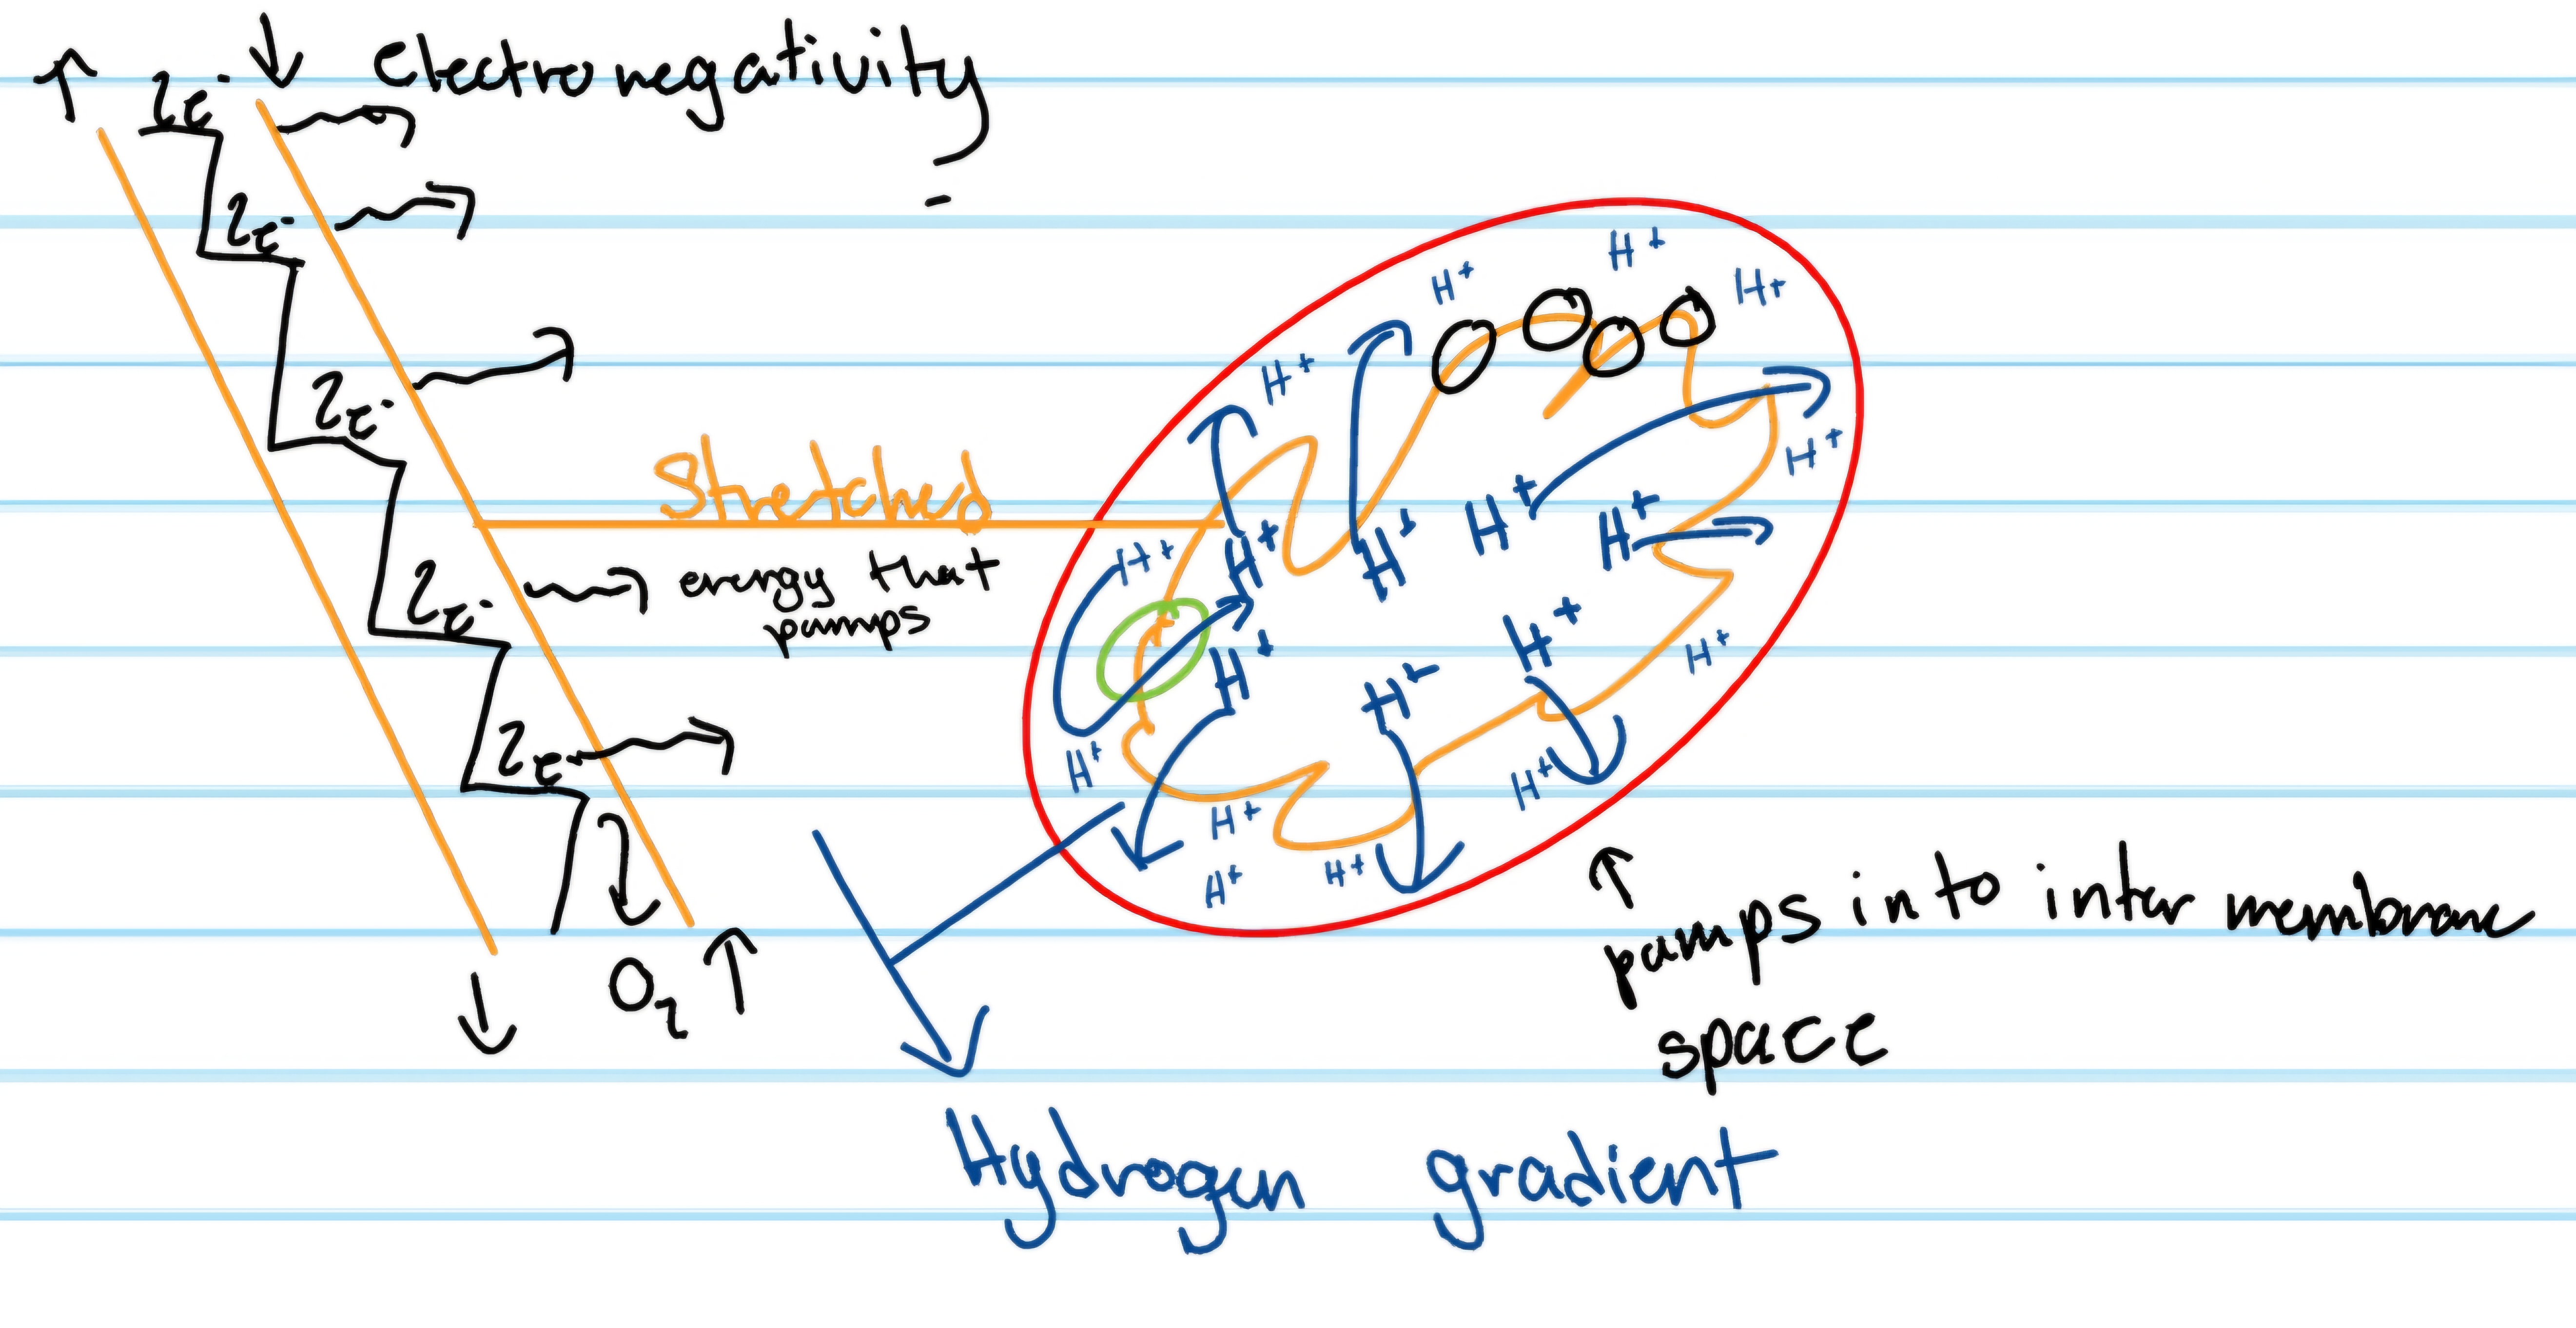 ↑ 2e- ↓ electronegativity
2e-
2e-
Stretched
2e- energy that
pumps
2e-
O2 ↑
H+ H+ H+
H+
H+
H+ H+ H+ H+ H+
H+ H+ H+ H+
H+ H+ H+
H+ H+
pumps into inter membrane
space
Hydrogen gradient